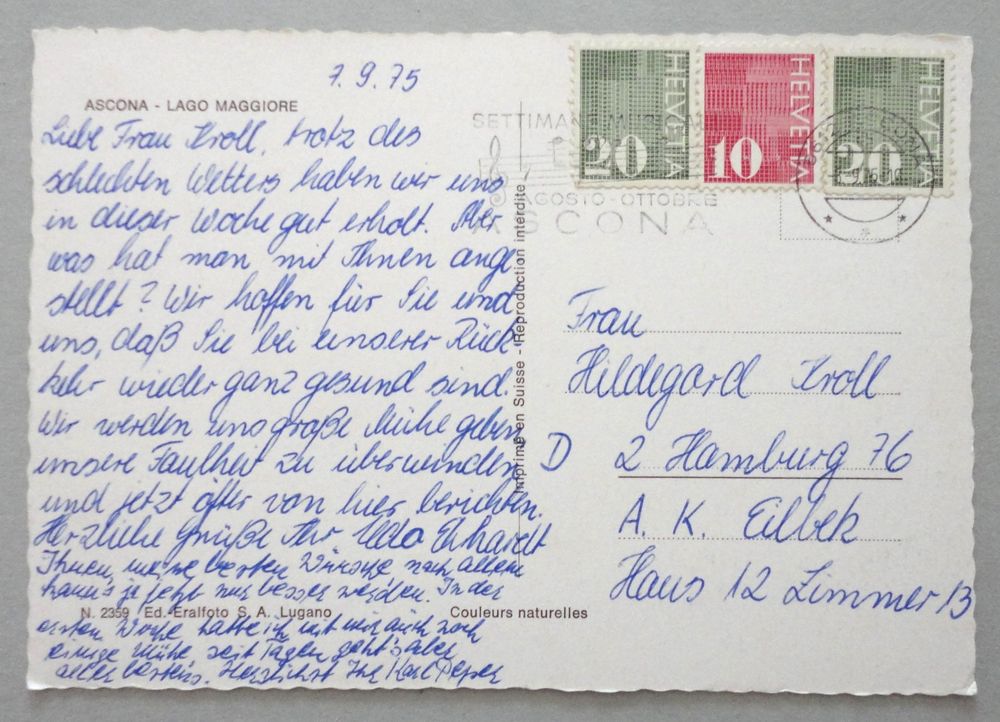 7.9.75
ASCONA - LAGO MAGGIORE
Liebe Frau Kroll, trotz des
schlechten Wetters haben wir uns
in dieser Woche gut erholt. Aber
was hat man mit Ihnen ange
stellt? Wir hoffen für Sie und
uns, daß Sie bei unserer Rück
kehr wieder ganz gesund sind.
Wir werden uns große Mühe geben
unsere Faulheit zu überwinden
und jetzt öfter von hier berichten.
Herzliche Grüße Ihr Udo Ehrhardt
Ihnen, meine besten Wünsche nach allem
kann's ja jetzt nur besser werden. In der
N. 2359 Ed.-Eralfoto S. A. Lugano
Couleurs naturelles
ersten Woche hatte ich mit mir auch noch
einige Mühe seit Tagen geht's aber
aller bestens. Herzlichst Ihr Karl
Imprimé en Suisse - Reproduction interdite
HELVETIA 20
HELVETIA 10
HELVETIA 20
SETTIMANE MUSICALI
AGOSTO - OTTOBRE
ASCONA
Frau
Hildegard Kroll
D 2 Hamburg 76
A. K. Eilbek
Haus 12 Zimmer 13